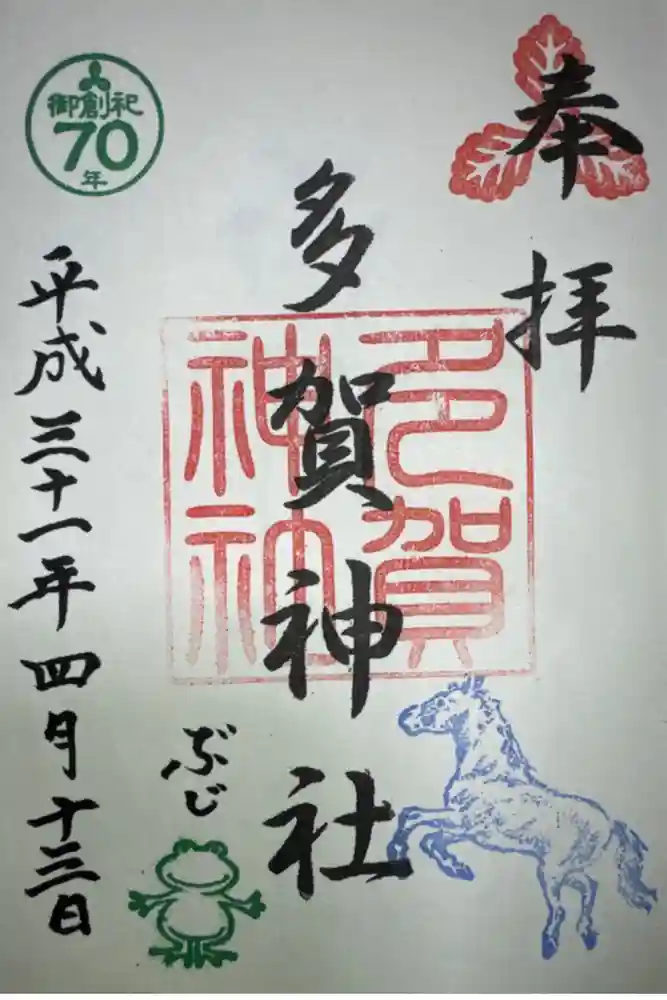 奉拝
多賀神社
多賀
神社
ぶじ
平成三十一年四月十三日
御創祀
70
年